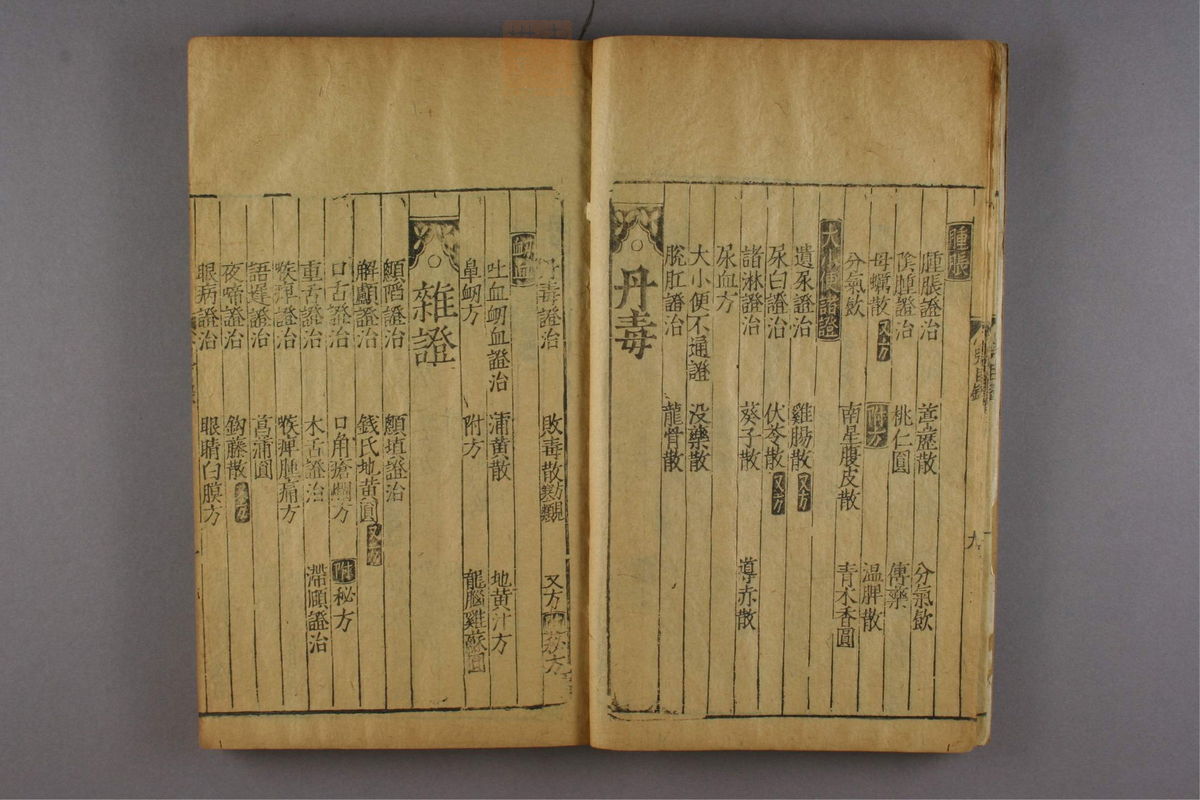 腫脹
腫脹證治 葶藶散 分氣飲
陰腫證治 桃仁圓 傅藥
母蠣散 又方 附方 溫脾散
分氣飲 南星腹皮散 青木香圓
大小便諸證
遺尿證治 雞腸散 又方
尿白證治 伏苓散 又方
諸淋證治 葵子散 導赤散
尿血方
大小便不通證 没藥散
脫肛證治 龍骨散
丹毒
九
丹毒證治 敗毒散 又方
衂血
吐血衂血證治 蒲黄散 地黄汁方
鼻衂方 附方 龍腦雞蘇圓
雜證
顖陷證治 顖填證治
解顱證治 錢氏地黄圓 又方
口舌證治 口角瘡爛方 附 秘方
重舌證治 木舌證治 滯頤證治
喉痺證治 喉痺腫痛方
語遲證治 菖蒲圓
夜啼證治 鈎藤散
眼病證治 眼睛白膜方